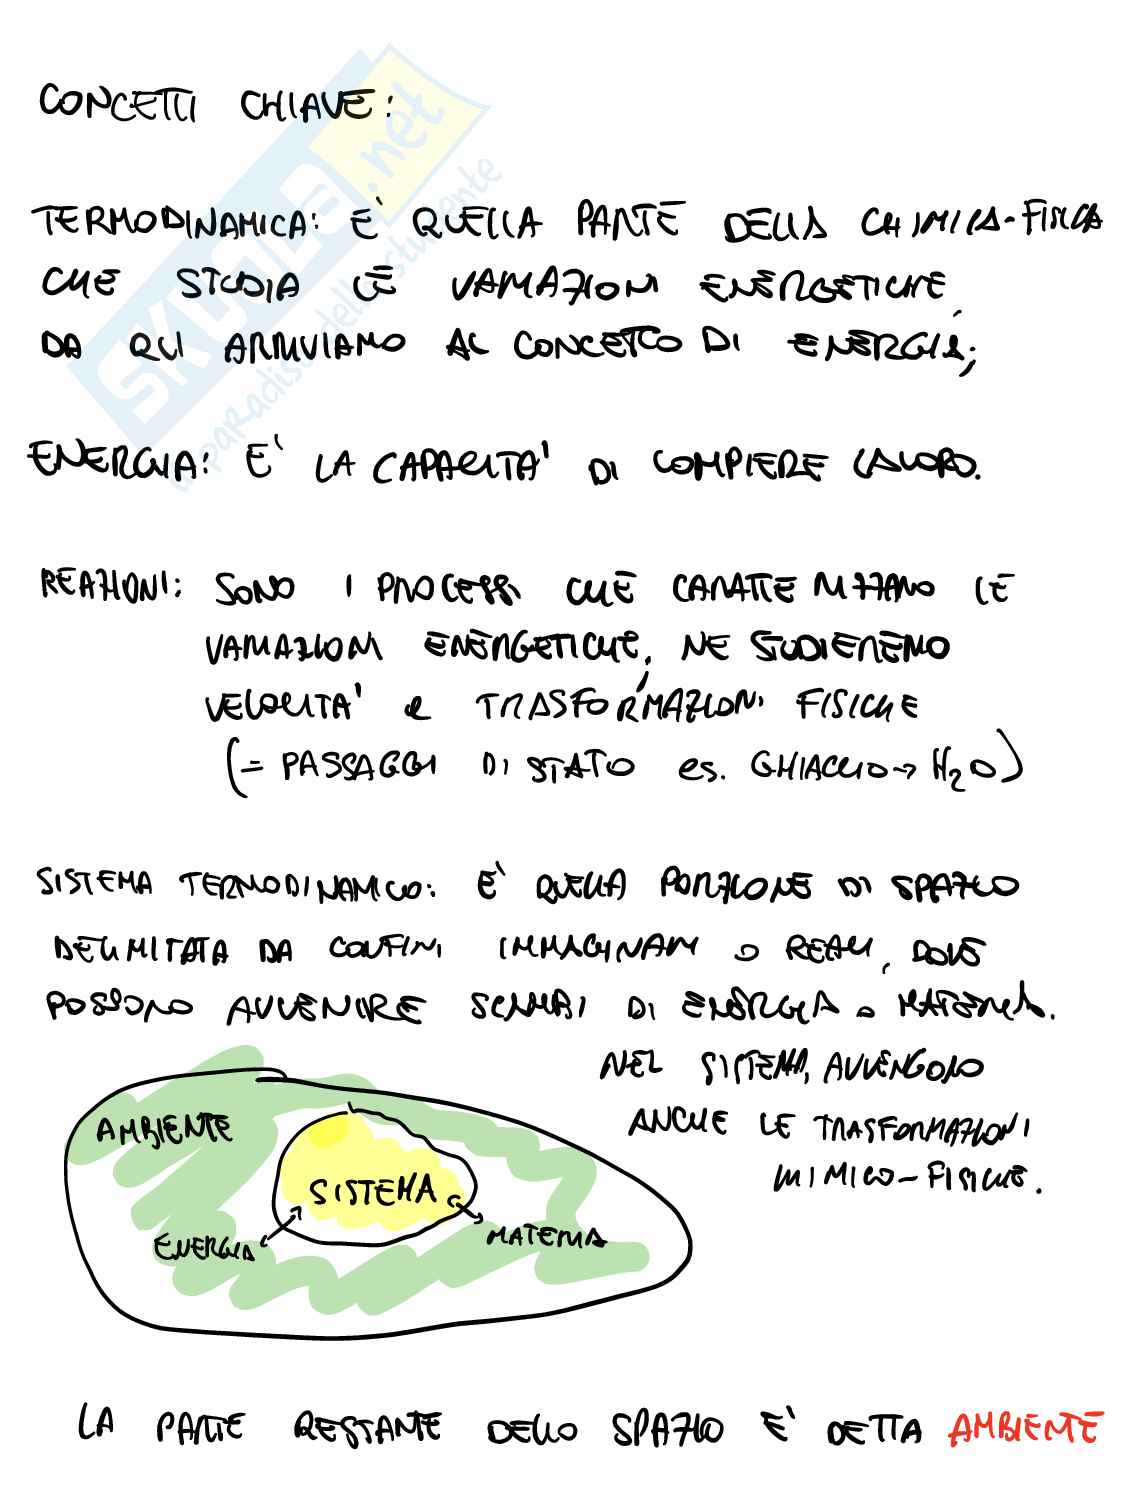 CONCETTI CHIAVE:
TERMODINAMICA: E' QUELLA PARTE DELLA CHIMICA-FISICA
CHE STUDIA LE VARIAZIONI ENERGETICHE,
DA QUI ARRIVIAMO AL CONCETTO DI ENERGIA;
ENERGIA: E' LA CAPACITA' DI COMPIERE LAVORO.
REAZIONI: SONO I PROCESSI CHE CARATTERIZZANO LE
VARIAZIONI ENERGETICHE, NE STUDIEREMO
VELOCITA' e TRASFORMAZIONI FISICHE
(= PASSAGGI DI STATO es. GHIACCIO → H₂O)
SISTEMA TERMODINAMICO: E' QUELLA PORZIONE DI SPAZIO
DELIMITATA DA CONFINI IMMAGINARI O REALI, DOVE
POSSONO AVVENIRE SCAMBI DI ENERGIA O MATERIA.
NEL SISTEMA, AVVENGONO
ANCHE LE TRASFORMAZIONI
CHIMICO-FISICHE.
AMBIENTE
SISTEMA
ENERGIA
MATERIA
LA PARTE RESTANTE DELLO SPAZIO E' DETTA AMBIENTE
SKUOLA.net
il paradiso dello studente